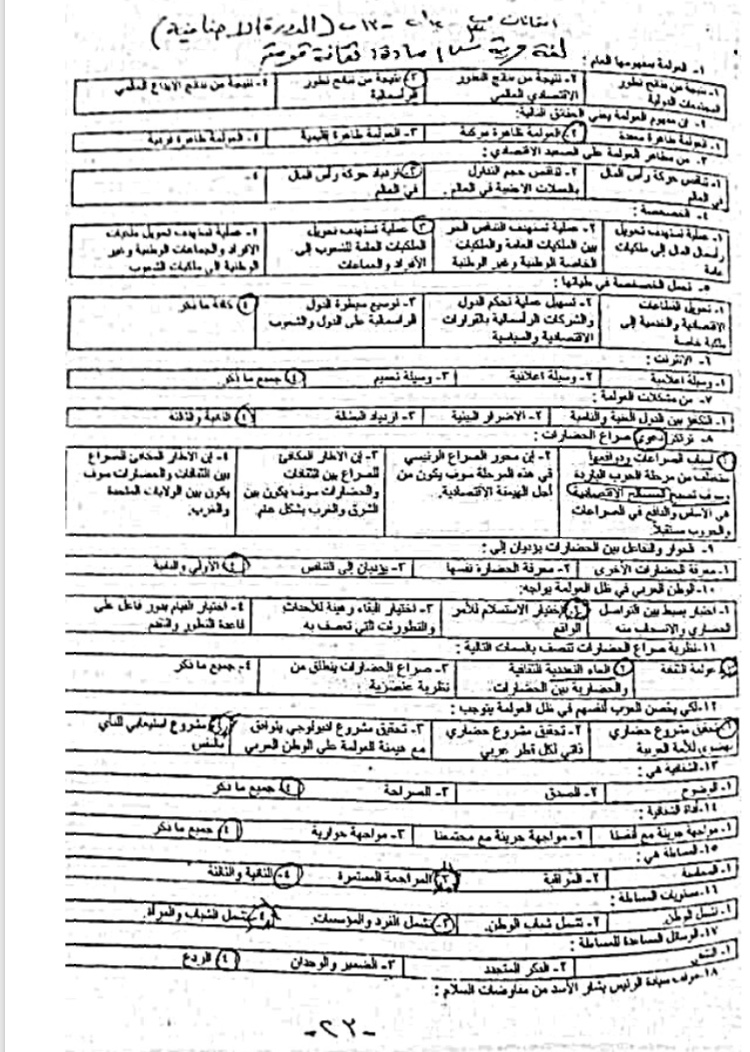 (الدورة الاجتماعية)
١- العولمة بمفهومها العام :
١- نتيجة من نتائج تطور المجتمعات الدولية ٢- نتيجة من نتائج التطور الاقتصادي العالمي ٣- نتيجة من نتائج تطور الرأسمالية ٤- نتيجة من نتائج الابداع العلمي
٢- إن مفهوم العولمة يعني الحقائق التالية:
١- العولمة ظاهرة معقدة ٢- العولمة ظاهرة مركبة ٣- العولمة ظاهرة إقليمية ٤- العولمة ظاهرة
٣- من مظاهر العولمة على الصعيد الاقتصادي :
١- تناقص حركة رأس المال في العالم ٢- تناقص حجم التداول بالعملات الاجنبية في العالم. ٣- ازدياد حركة رأس المال في العالم ٤-
٤- الخصخصة :
١- عملية تستهدف تحويل رأسمال المال إلى ملكيات عامة ٢- عملية تستهدف التنافس الحر بين الملكيات العامة والملكيات الخاصة الوطنية وغير الوطنية ٣- عملية تستهدف تحويل الملكيات العامة للشعوب إلى الأفراد والجماعات ٤- عملية تستهدف تحويل ملكيات الافراد والجماعات الوطنية وغير الوطنية الى ملكيات الشعوب
٥- تحمل الخصخصة في طياتها :
١- تحويل القطاعات الاقتصادية والخدمية إلى ملكية خاصة ٢- تسهيل عملية تحكم الدول والشركات الرأسمالية بالقرارات الاقتصادية والسياسية ٣- توسيع سيطرة الدول الرأسمالية على الدول والشعوب ٤- كافة ما ذكر
٦- الانترنت :
١- وسيلة اعلامية ٢- وسيلة اعلانية ٣- وسيلة تعليم ٤- جميع ما ذكر
٧- من مشكلات العولمة :
١- التكافؤ بين الدول الغنية والنامية ٢- الاضرار البيئية ٣- ازدياد البطالة ٤- الثانية والثالثة
٨- ترتكز دعوى صراع الحضارات :
١- أسباب الصراعات ودوافعها ستختلف عن مرحلة الحرب الباردة وسوف تصبح المسائل الاقتصادية هي الأساس والدافع في الصراعات والحروب مستقبلاً ٢- إن محور الصراع الرئيسي في هذه المرحلة سوف يكون من أجل الهيمنة الاقتصادية. ٣- إن الاطار المكافئ للصراع بين الثقافات والحضارات سوف يكون بين الشرق والغرب بشكل عام. ٤- إن الاطار المكافئ للصراع بين الثقافات والحضارات سوف يكون بين الولايات المتحدة والغرب.
٩- الحوار والتفاعل بين الحضارات يؤديان إلى :
١- معرفة الحضارات الأخرى ٢- معرفة الحضارة نفسها ٣- يؤديان إلى التنافس ٤- الأولى والثانية
١٠- الوطن العربي في ظل العولمة يواجه:
١- اختيار بسيط بين التواصل الحضاري والانسحاب منه ٢- اختيار الاستسلام للأمر الواقع ٣- اختيار البقاء رهينة للأحداث والتطورات التي تعصف به ٤- اختيار القيام بدور فاعل على قاعدة التطور والتقدم
١١- نظرية صراع الحضارات تتصف بالسمات التالية :
١- عولمة الثقافة ٢- الغاء التعددية الثقافية والحضارية بين الحضارات. ٣- صراع الحضارات ينطلق من نظرية عنصرية ٤- جميع ما ذكر
١٢- لكي يحصن العرب أنفسهم في ظل العولمة يتوجب :
١- تحقيق مشروع حضاري نهضوي للأمة العربية ٢- تحقيق مشروع حضاري ذاتي لكل قطر عربي ٣- تحقيق مشروع ايديولوجي يتوافق مع هيمنة العولمة على الوطن العربي ٤- مشروع
١٣- الشفافية هي :
١- الوضوح ٢- الصدق ٣- الصراحة ٤- جميع ما ذكر
١٤- أداة الشفافية :
١- مواجهة جريئة مع أنفسنا ٢- مواجهة جريئة مع مجتمعنا ٣- مواجهة حوارية ٤- جميع ما ذكر
١٥- المساءلة هي :
١- المحاسبة ٢- المراقبة ٣- المراجعة المستمرة ٤- الثانية والثالثة
١٦- مستويات المساءلة :
١- تشمل الوطن. ٢- تشمل شباب الوطن. ٣- تشمل الفرد والمؤسسات. ٤- تشمل الشباب والمرأة.
١٧- الوسائل المساعدة للمساءلة :
١- ٢- الفكر المتجدد ٣- الضمير والوجدان ٤- الردع
١٨- موقف سيادة الرئيس بشار الأسد من مفاوضات السلام :
-٢٣-